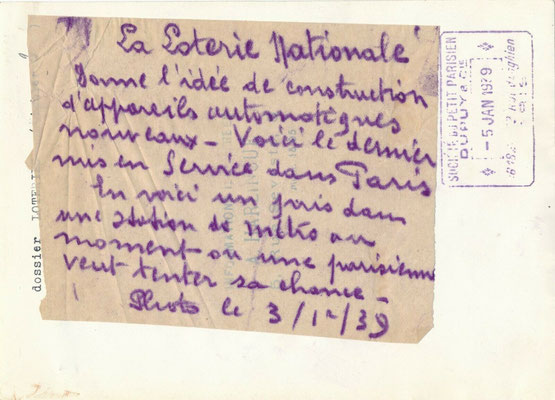 La Loterie Nationale
Donne l'idée de construction
d'appareils automatiques
nouveaux - Voici le dernier
mis en Service dans Paris
En voici un pris dans
une station de métro au
moment ou une parisienne
veut tenter sa chance -
Photo le 3/1r/39
SOCIÉTÉ DU PETIT PARISIEN
DUPUY & CIE
- 5 JAN 1939
dossier LOTERI